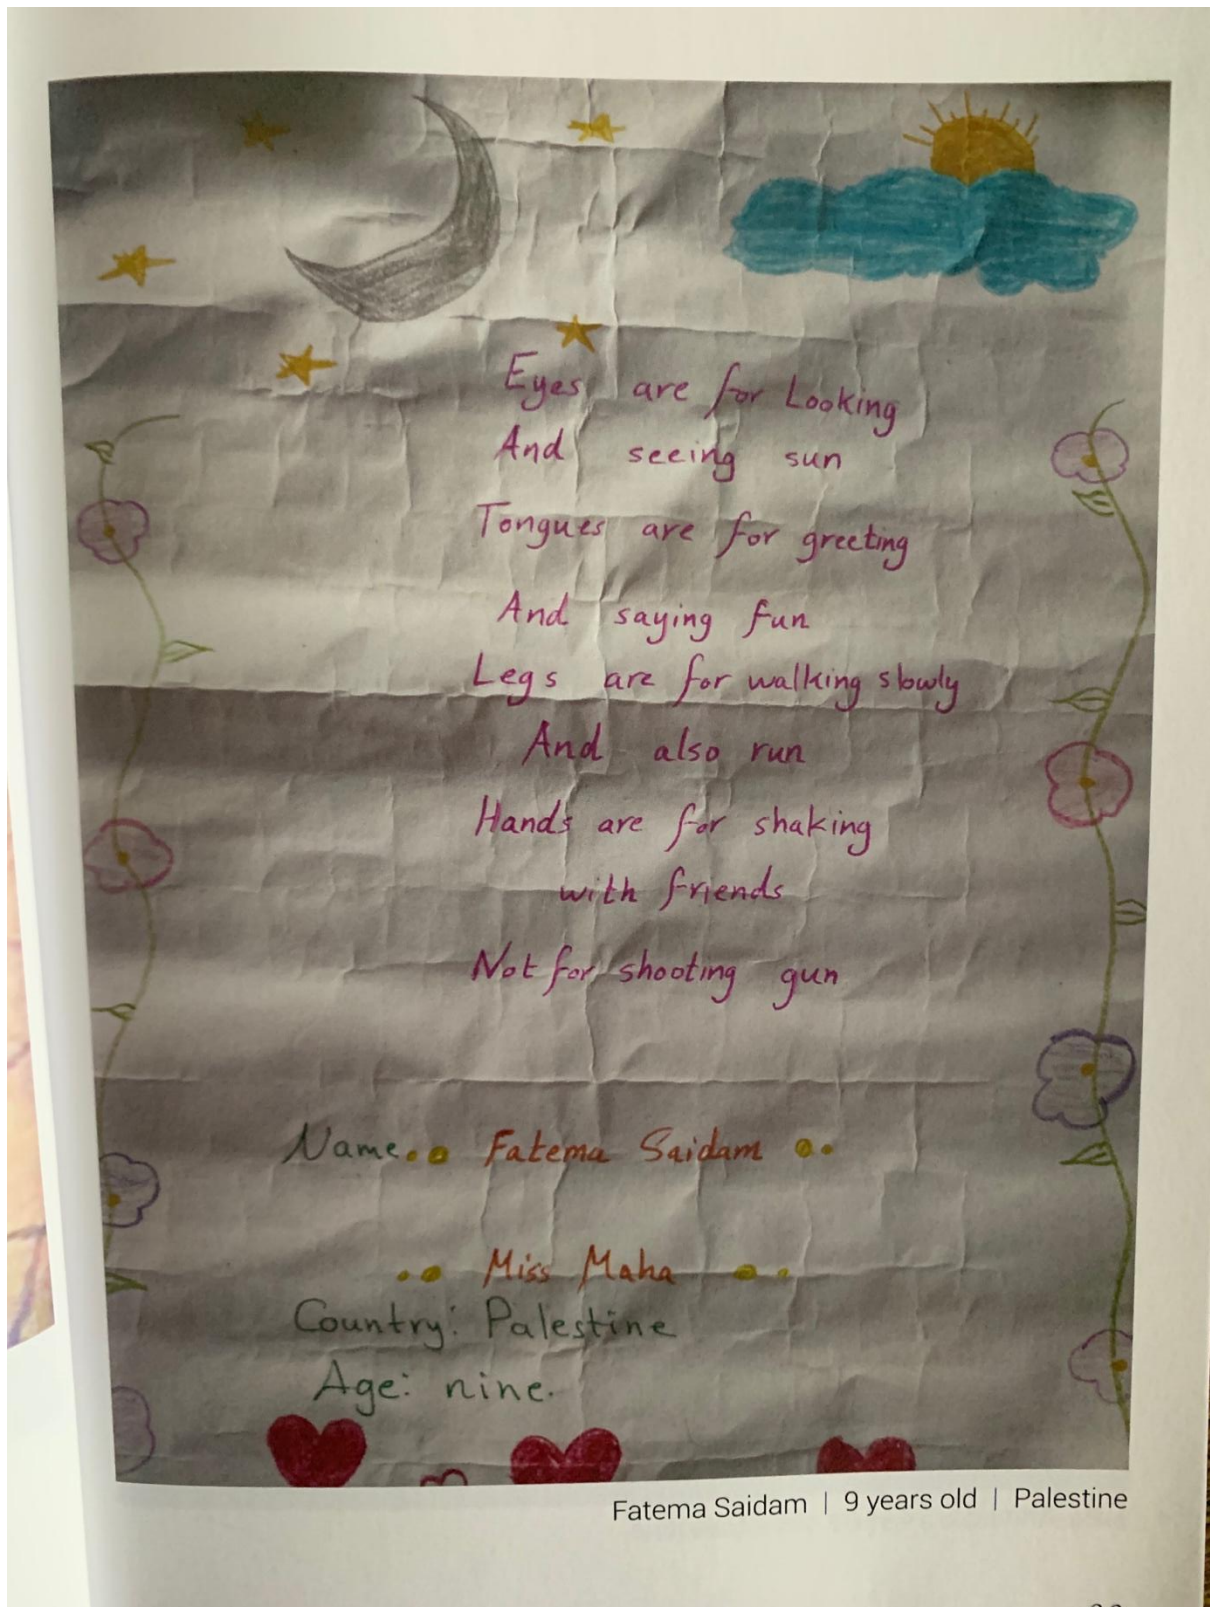 Eyes are for Looking
And seeing sun
Tongues are for greeting
And saying fun
Legs are for walking slowly
And also run
Hands are for shaking
with friends
Not for shooting gun
Name.. Fatema Saidam ..
.. Miss Maha ..
Country: Palestine
Age: nine.
Fatema Saidam | 9 years old | Palestine